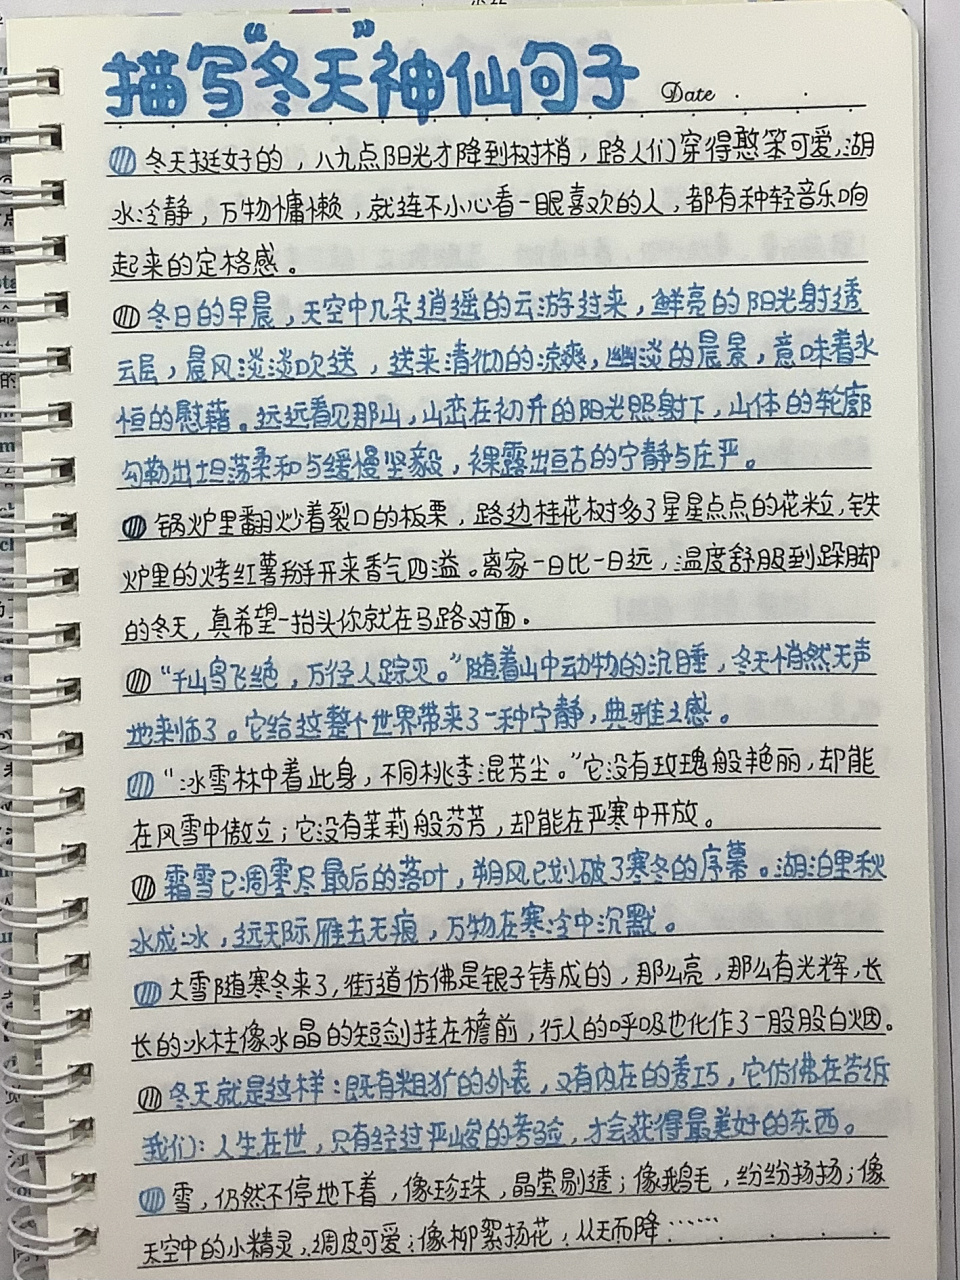 描写“冬天”神仙句子 Date
冬天挺好的，八九点阳光才降到树梢，路人们穿得憨笨可爱，湖
水冷静，万物慵懒，就连不小心看一眼喜欢的人，都有种轻音乐响
起来的定格感。
冬日的早晨，天空中几朵逍遥的云游过来，鲜亮的阳光射透
云层，晨风淡淡吹送，送来清彻的凉爽，幽淡的晨景，意味着永
恒的慰藉。远远看见那山，山峦在初升的阳光照射下，山体的轮廓
勾勒出坦荡柔和与缓慢坚毅，裸露出亘古的宁静与庄严。
锅炉里翻炒着裂口的板栗，路边桂花树多了星星点点的花粒，铁
炉里的烤红薯掰开来香气四溢。离家一日比一日远，温度舒服到跺脚
的冬天，真希望一抬头你就在马路对面。
“千山鸟飞绝，万径人踪灭。”随着山中动物的沉睡，冬天悄然无声
地来临了。它给这整个世界带来了一种宁静，典雅之感。
“冰雪林中着此身，不同桃李混芳尘。”它没有玫瑰般艳丽，却能
在风雪中傲立；它没有茉莉般芬芳，却能在严寒中开放。
霜雪已凋零尽最后的落叶，朔风已划破了寒冬的序幕。湖泊里秋
水成冰，远天际雁去无痕，万物在寒冷中沉默。
大雪随寒冬来了，街道仿佛是银子铸成的，那么亮，那么有光辉，长
长的冰柱像水晶的短剑挂在檐前，行人的呼吸也化作了一股股白烟。
冬天就是这样：既有粗犷的外表，又有内在的秀巧，它仿佛在告诉
我们：人生在世，只有经过严峻的考验，才会获得最美好的东西。
雪，仍然不停地下着，像珍珠，晶莹剔透；像鹅毛，纷纷扬扬；像
天空中的小精灵，调皮可爱；像柳絮扬花，从天而降……